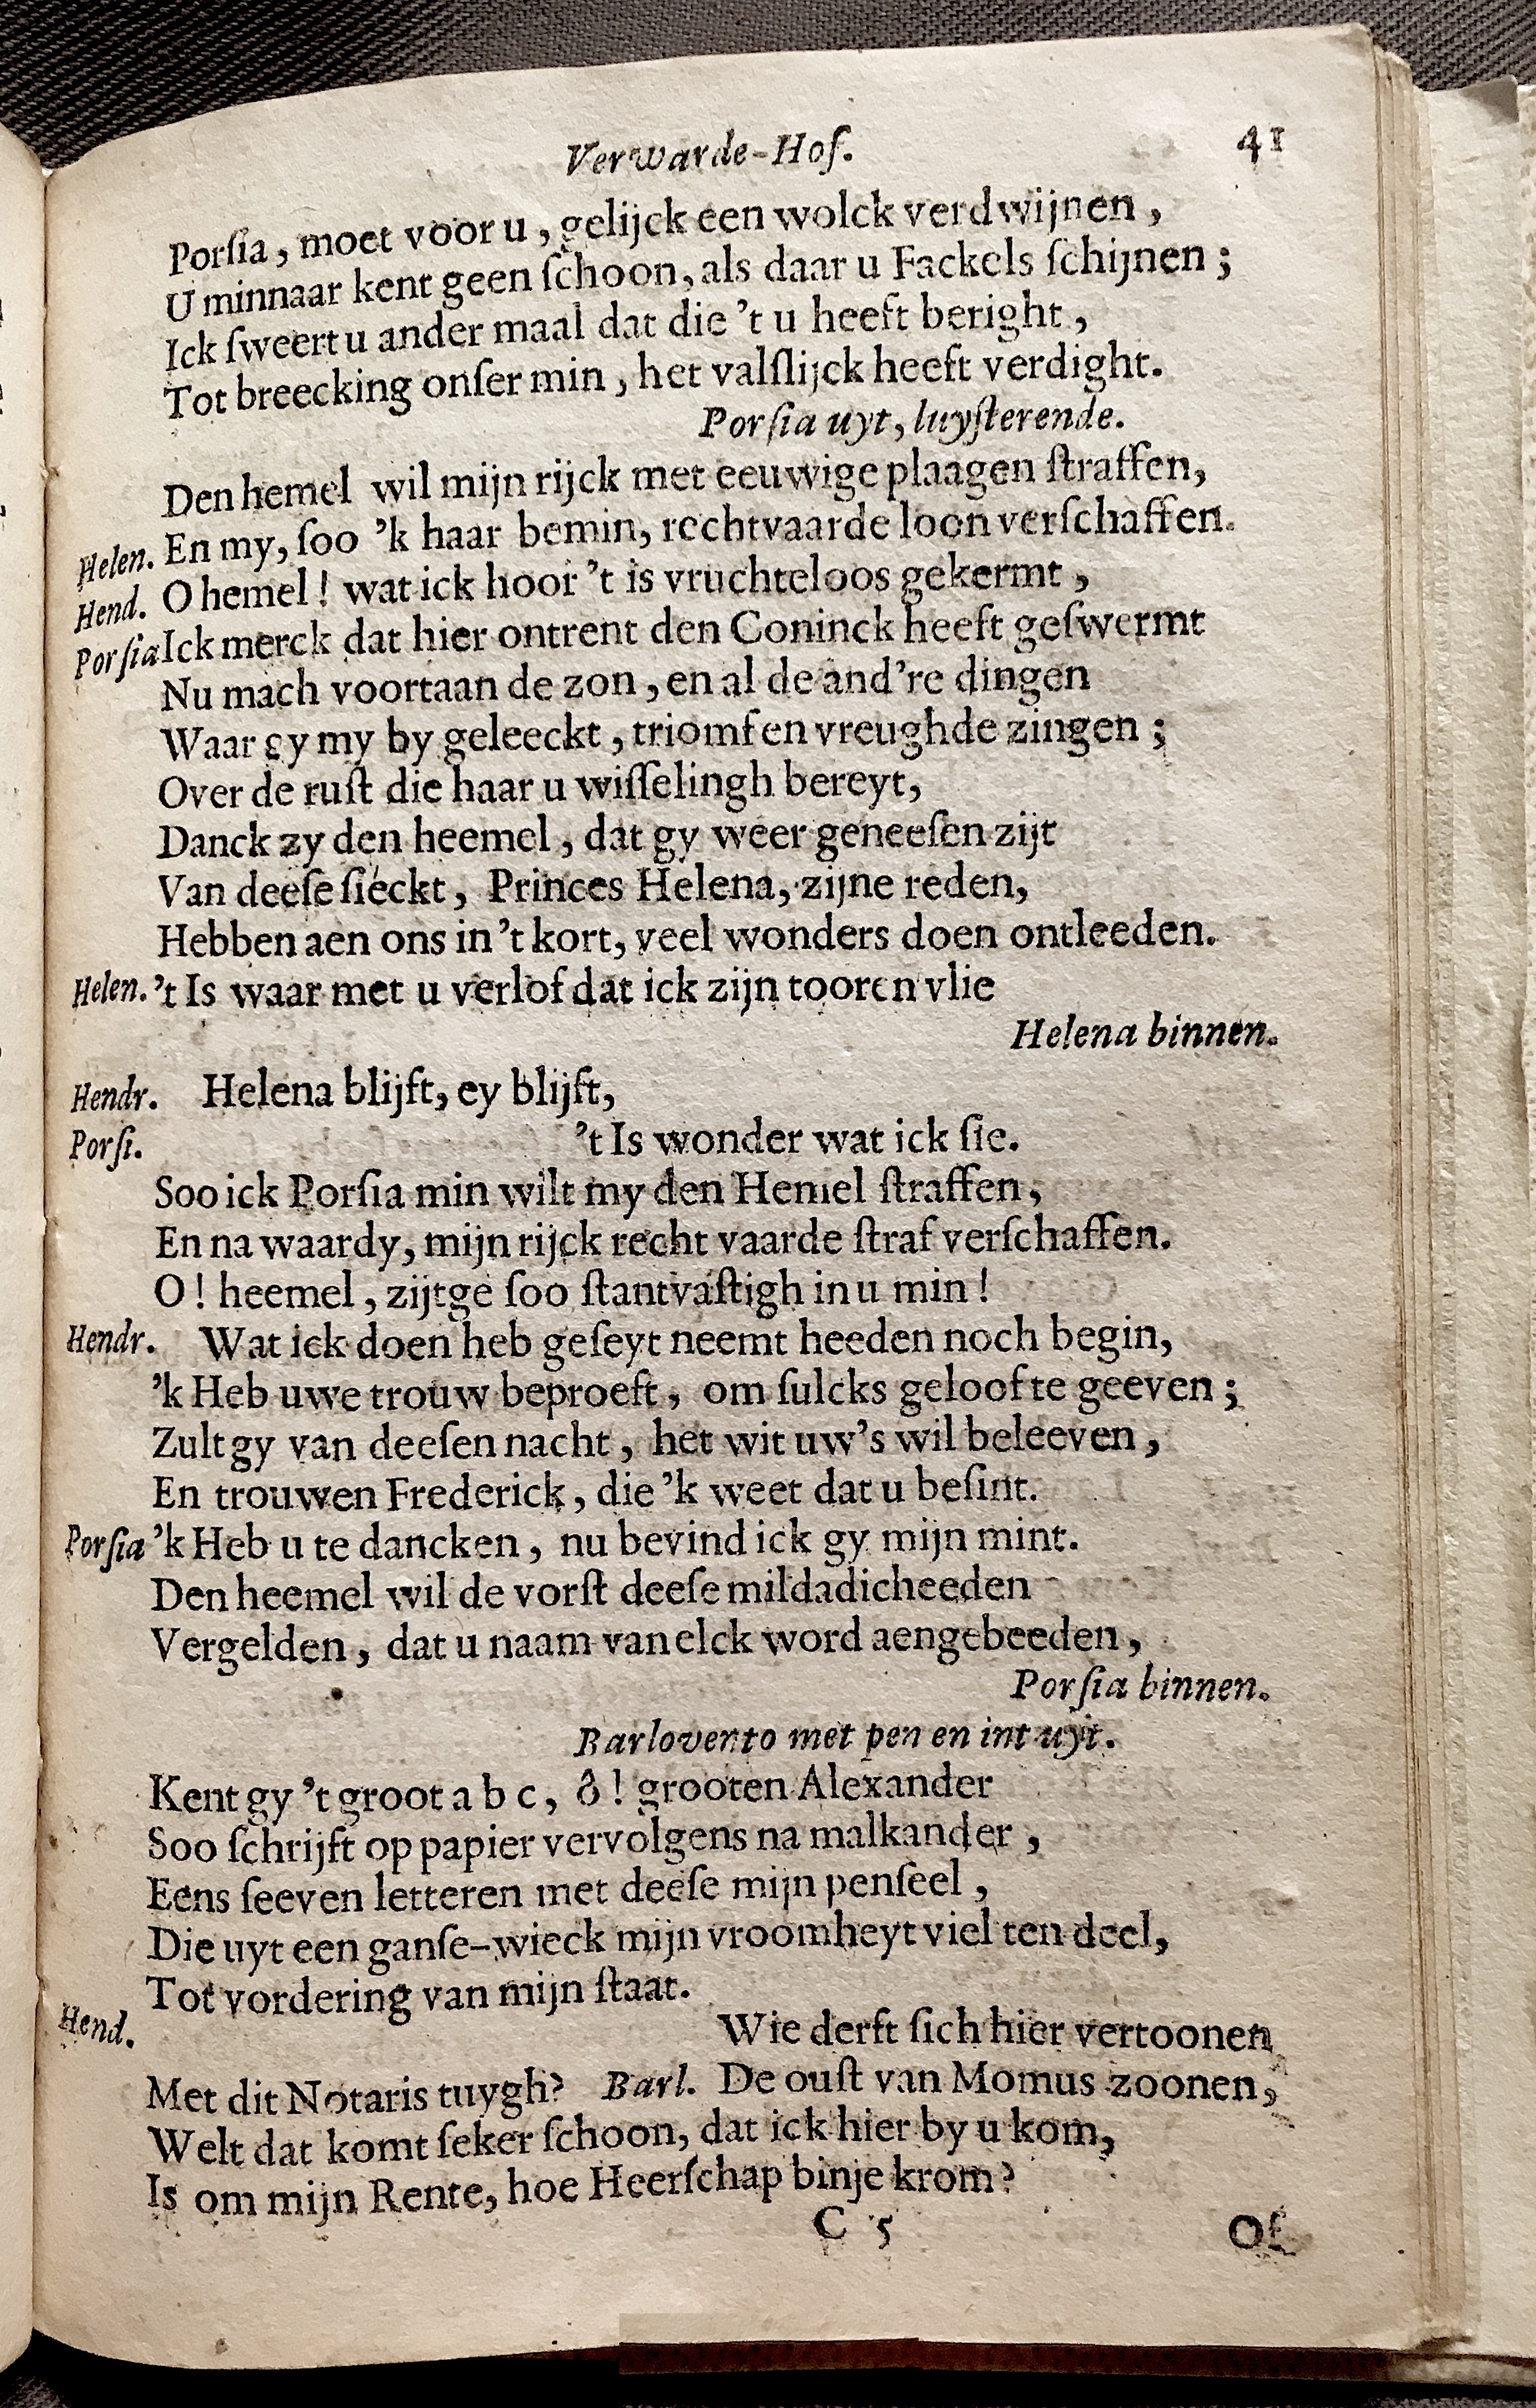 Verwarde-Hof. 41
Porſia, moet voor u, gelijck een wolck verdwijnen,
U minnaar kent geen ſchoon, als daar u Fackels ſchijnen;
Ick ſweert u ander maal dat die 't u heeft beright,
Tot breecking onſer min, het valſlijck heeft verdight.
Porſia uyt, luyſterende.
Den hemel wil mijn rijck met eeuwige plaagen ſtraffen,
Helen. En my, ſoo 'k haar bemin, rechtvaarde loon verſchaffen.
Hend. O hemel! wat ick hoor 't is vruchteloos gekermt,
Porſia Ick merck dat hier ontrent den Coninck heeft geſwermt
Nu mach voortaan de zon, en al de and're dingen
Waar gy my by geleeckt, triomf en vreughde zingen;
Over de ruſt die haar u wiſſelingh bereyt,
Danck zy den heemel, dat gy weer geneeſen zijt
Van deeſe ſieckt, Princes Helena, zijne reden,
Hebben aen ons in 't kort, veel wonders doen ontleeden.
Helen. 't Is waar met u verlof dat ick zijn tooren vlie
Helena binnen.
Hendr. Helena blijft, ey blijft,
Porſi. 't Is wonder wat ick ſie.
Soo ick Porſia min wilt my den Hemel ſtraffen,
En na waardy, mijn rijck recht vaarde ſtraf verſchaffen.
O! heemel, zijtge ſoo ſtantvaſtigh in u min!
Hendr. Wat ick doen heb geſeyt neemt heeden noch begin,
'k Heb uwe trouw beproeft, om ſulcks geloof te geeven;
Zult gy van deeſen nacht, het wit uw's wil beleeven,
En trouwen Frederick, die 'k weet dat u beſint.
Porſia 'k Heb u te dancken, nu bevind ick gy mijn mint.
Den heemel wil de vorſt deeſe mildadicheeden
Vergelden, dat u naam van elck word aengebeeden,
Porſia binnen.
Barlovento met pen en int uyt.
Kent gy 't groot a b c, ô! grooten Alexander
Soo ſchrijft op papier vervolgens na malkander,
Eens ſeeven letteren met deeſe mijn penſeel,
Die uyt een ganſe-wieck mijn vroomheyt viel ten deel,
Tot vordering van mijn ſtaat.
Hend. Wie derft ſich hier vertoonen
Met dit Notaris tuygh? Barl. De ouſt van Momus zoonen,
Welt dat komt ſeker ſchoon, dat ick hier by u kom,
Is om mijn Rente, hoe Heerſchap binje krom?
C 5 Of